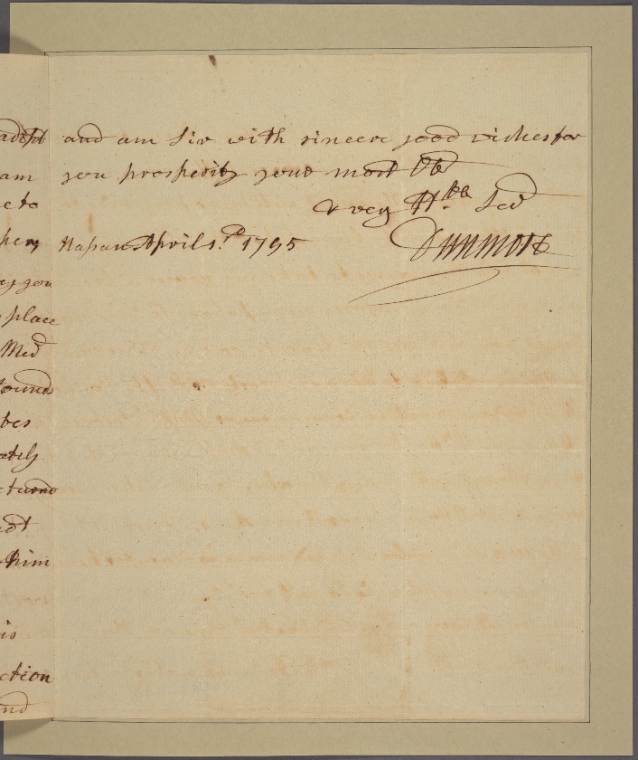 adist and am Sir with sincere good wishes for
am you prosperity your most Ob
e to & very H.ble Serv
Nassau April 1st 1795 Dunmore
ey you
place
Med
found
bes
ately
cturne
not
him
is
ction
nd